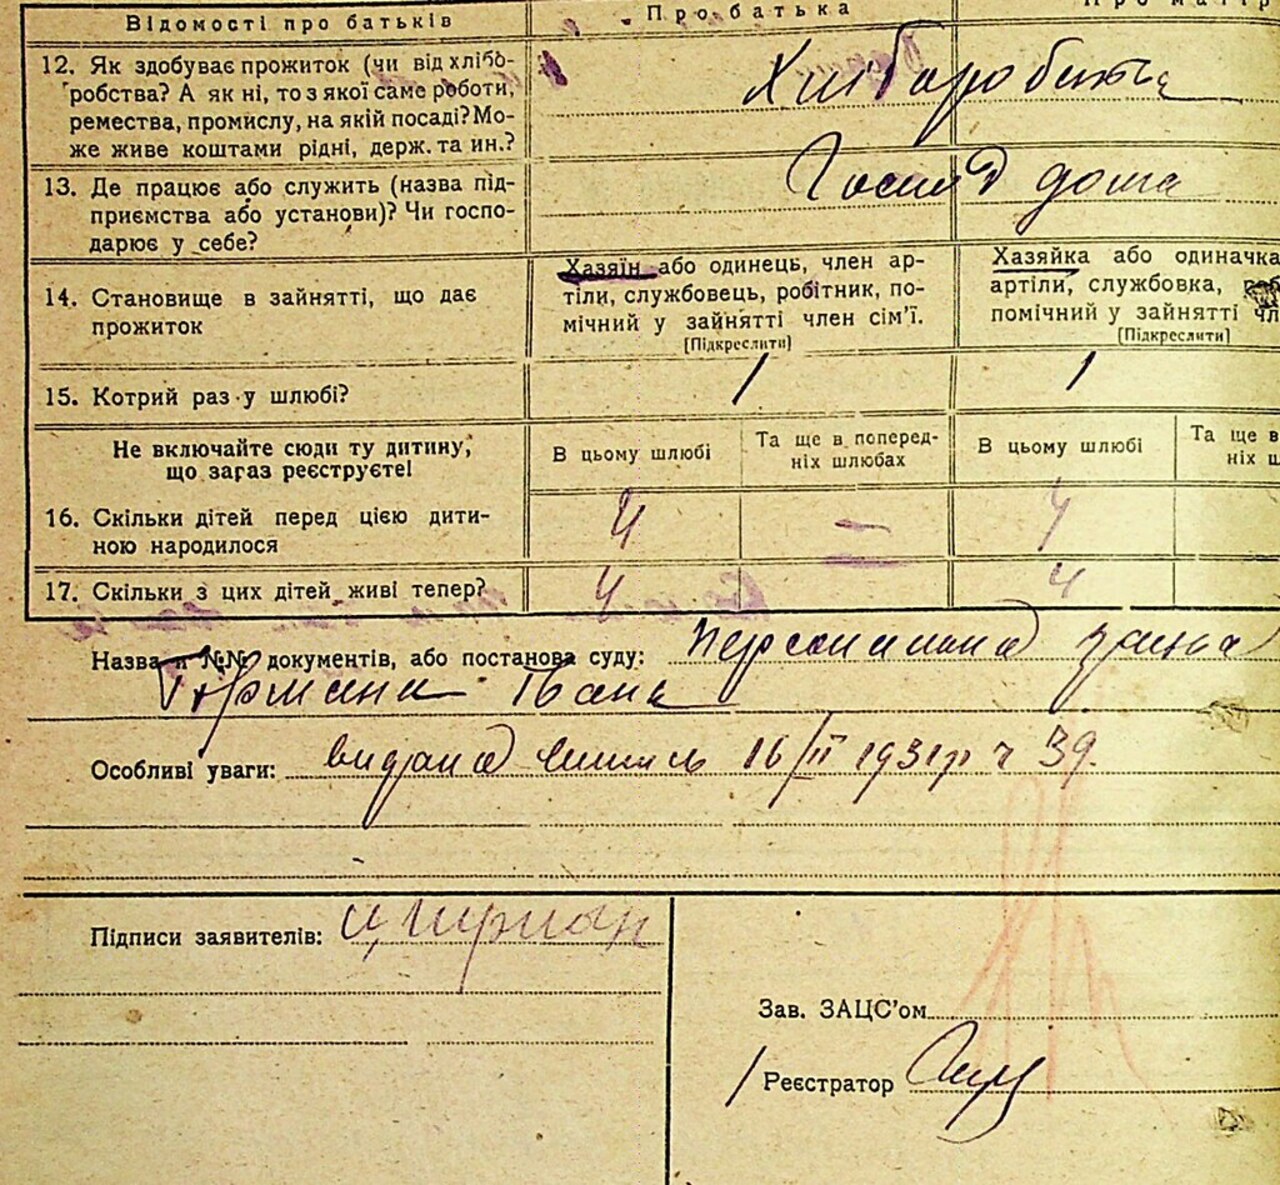 Відомості про батьків
Про батька
12. Як здобуває прожиток (чи від хлібо-
робства? А як ні, то з якої саме роботи,
ремества, промислу, на якій посаді? Мо-
же живе коштами рідні, держ. та ин.?
Хліборобить
13. Де працює або служить (назва під-
приємства або установи)? Чи госпо-
дарює у себе?
Господ дома
14. Становище в зайнятті, що дає
прожиток
Хазяїн або одинець, член ар-
тіли, службовець, робітник, по-
мічний у зайнятті член сім'ї.
[Підкреслити]
Хазяйка або одиначка
артіли, службовка,
помічний у зайнятті чл
[Підкреслити]
15. Котрий раз у шлюбі?
1
1
Не включайте сюди ту дитину,
що зараз реєструєте!
В цьому шлюбі
Та ще в поперед-
ніх шлюбах
В цьому шлюбі
Та ще в
ніх ш
16. Скільки дітей перед цією дити-
ною народилося
4
—
4
17. Скільки з цих дітей живі тепер?
4
4
Назва й №№ документів, або постанова суду:
Івана
Особливі уваги: видана 16/II 1931р ч 39.
Підписи заявителів:
Зав. ЗАЦС'ом
Реєстратор